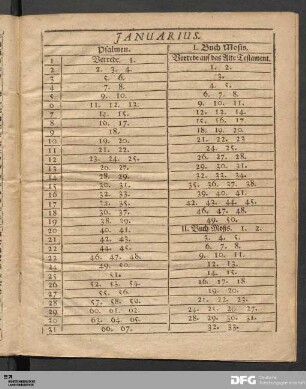 JANUARIUS.
Psalmen. I. Buch Mosis.
1 Vorrede. 1. Vorrede auf das Alte Testament.
2 2. 3. 4. 1. 2.
3 5. 6. 3.
4 7. 8. 4. 5.
5 9. 10. 6. 7. 8.
6 11. 12. 13. 9. 10. 11.
7 14. 15. 12. 13. 14.
8 16. 17. 15. 16. 17.
9 18. 18. 19. 20.
10 19. 20. 21. 22. 23
11 21. 22. 24. 25.
12 23. 24. 25. 26. 27. 28.
13 26. 27. 29. 30. 31.
14 28. 29. 32. 33. 34.
15 30. 31. 35. 36. 37. 38.
16 32. 33. 39. 40. 41.
17 34. 35. 42. 43. 44. 45.
18 36. 37. 46. 47. 48.
19 38. 39. 49. 50.
20 40. 41. II. Buch Mosis. 1. 2.
21 42. 43. 3. 4. 5.
22 44. 45. 6. 7. 8.
23 46. 47. 48. 9. 10. 11.
24 49. 50. 12. 13.
25 51. 14. 15.
26 52. 53. 54. 16. 17. 18
27 55. 56. 19. 20.
28 57. 58. 59. 21. 22. 23.
29 60. 61. 62. 24. 25. 26. 27.
30 63. 64. 65. 28. 29. 30. 31.
31 66. 67. 32. 33.
DFG